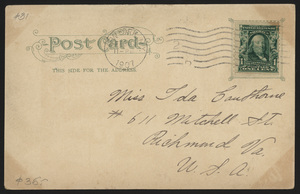 Post Card
THIS SIDE FOR THE ADDRESS.
1907
Miss Ida Cauthorne
# 611 Mitchell St.
Richmond Va.
U. S. A.